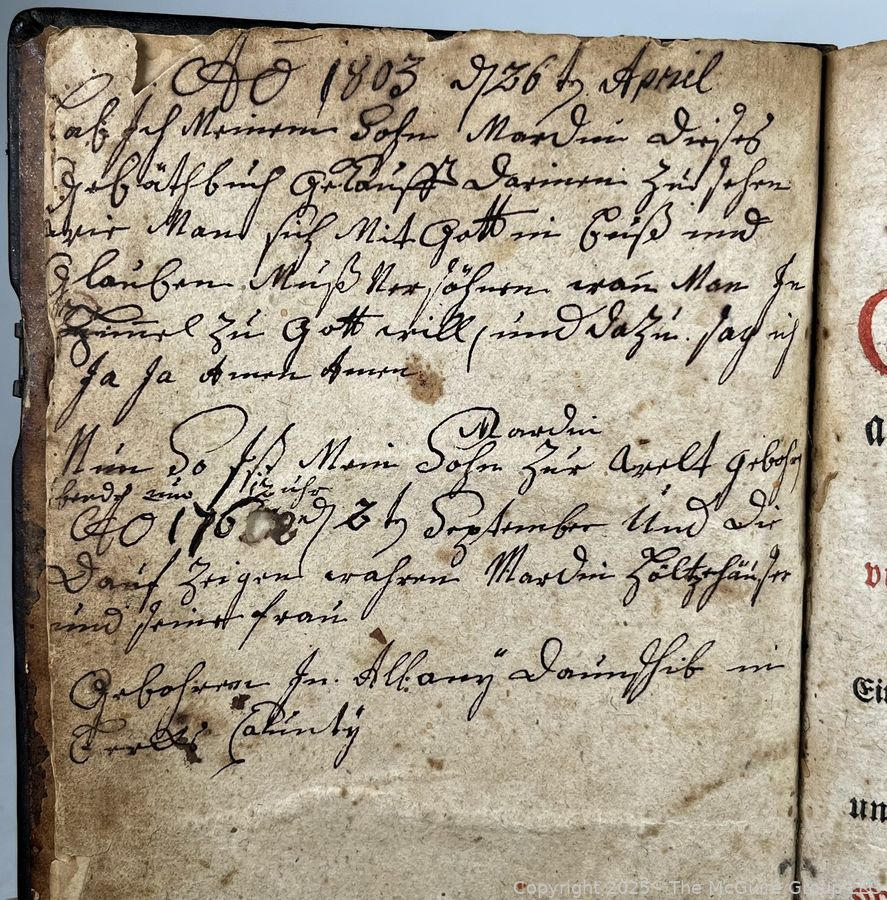 AO 1803 d 26 ty April
hab Ich Meinem Sohn Mardin Dieses
gebäthbuch gekaufft Darinen zu sehen
wie Man sich Mit Gott in Buß und
glauben Muß Versöhnen wan Man In
Himmel zu Gott will, und dazu sag ich
Ja Ja Amen Amen
Mardin
Nun So Ist Mein Sohn zur welt gebohren
12 uhr
AO 176 d 2 ty September Und Die
Dauf Zeigen wahren Mardin Höltzhäuser
und seine frau
Gebohren In Albany Daunschib in
Berks Caunty
a
Ei
un
Copyright 2025 - The McGuire Group